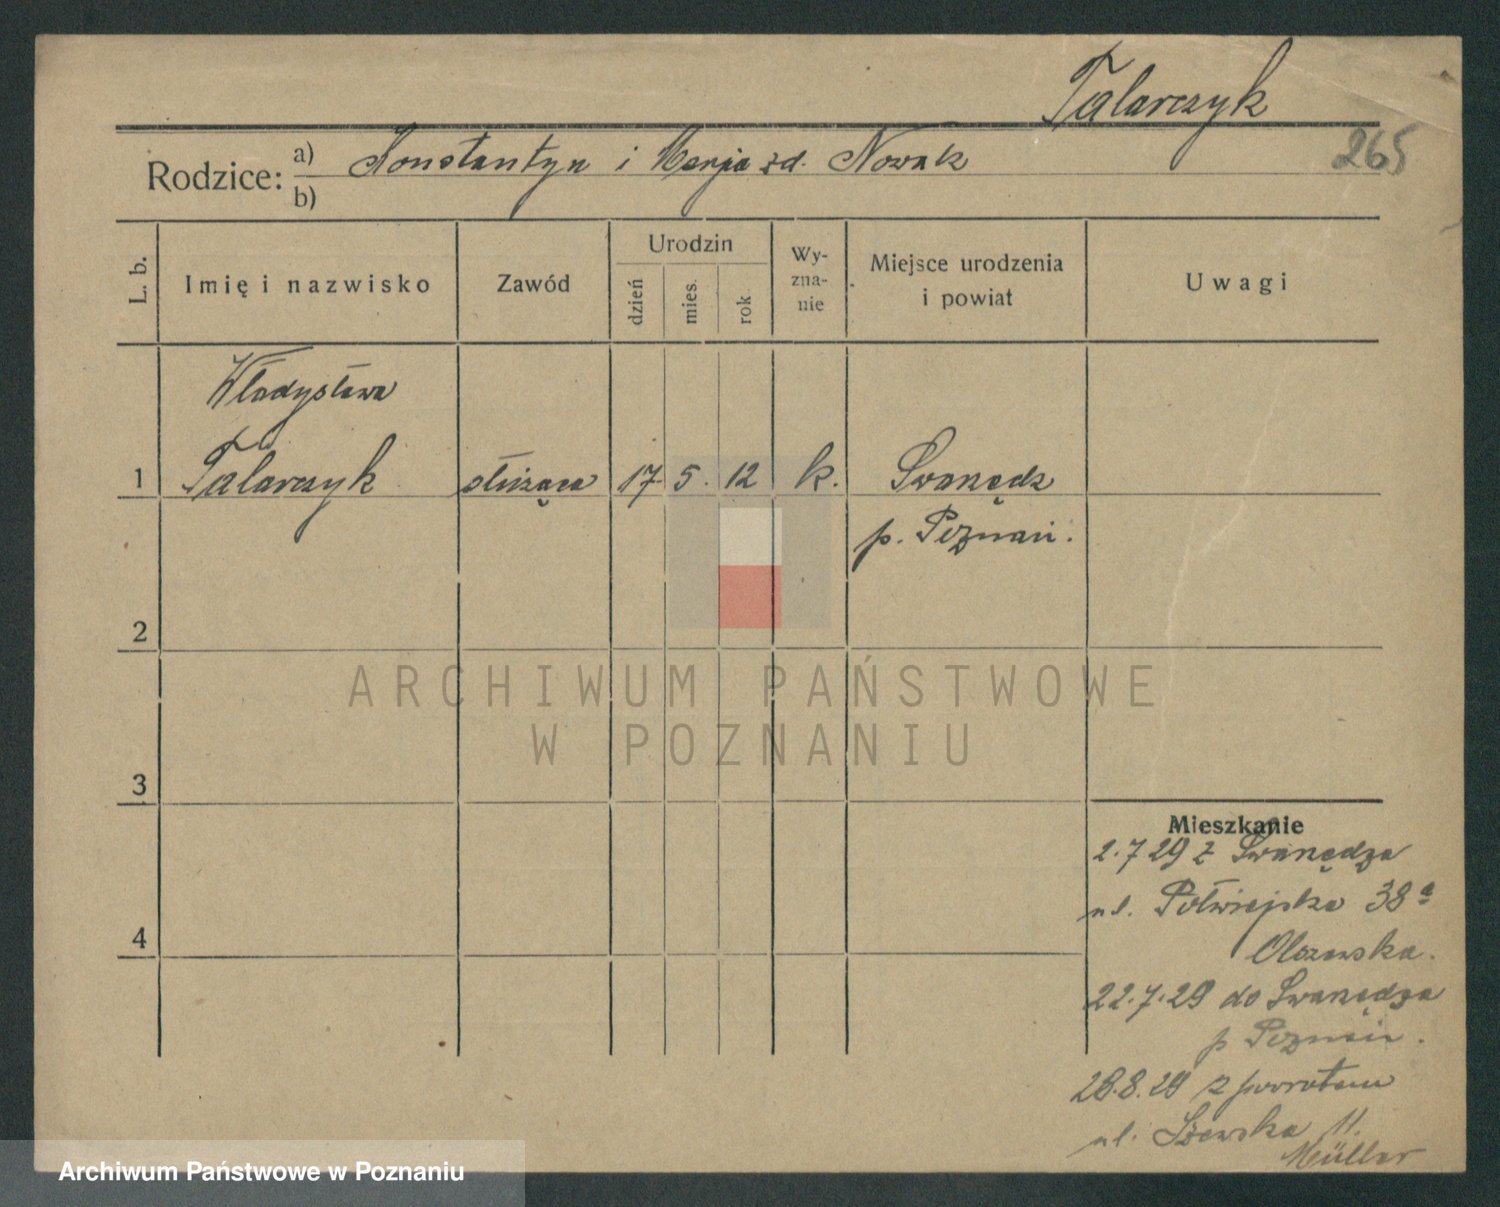 Talarczyk
265
Rodzice: a) Konstantyn i Marja zd. Nowak
b)
L. b.
Imię i nazwisko
Zawód
Urodzin
dzień
mies.
rok
Wy-
zna-
nie
Miejsce urodzenia
i powiat
Uwagi
Władysława
1 Talarczyk służąca 17. 5. 12 k. Swarzędz
p. Poznań.
2
ARCHIWUM PAŃSTWOWE
W POZNANIU
3
Mieszkanie
2.7 29 z Swarzędza
ul. Półwiejska 38a
Olszewska.
4
22.7.29 do Swarzędza
p Poznań.
28.8.29 z powrotem
ul. Szewska 11.
Müller
Archiwum Państwowe w Poznaniu